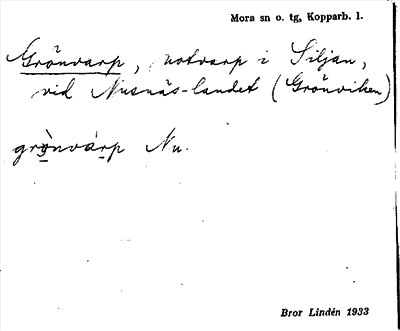 Mora sn o. tg, Kopparb. l.
Grönvarp, notvarp i Siljan,
vid Nusnäs-landet (Grönviken)
grò̱nvár̲p Nu.
Bror Lindén 1933